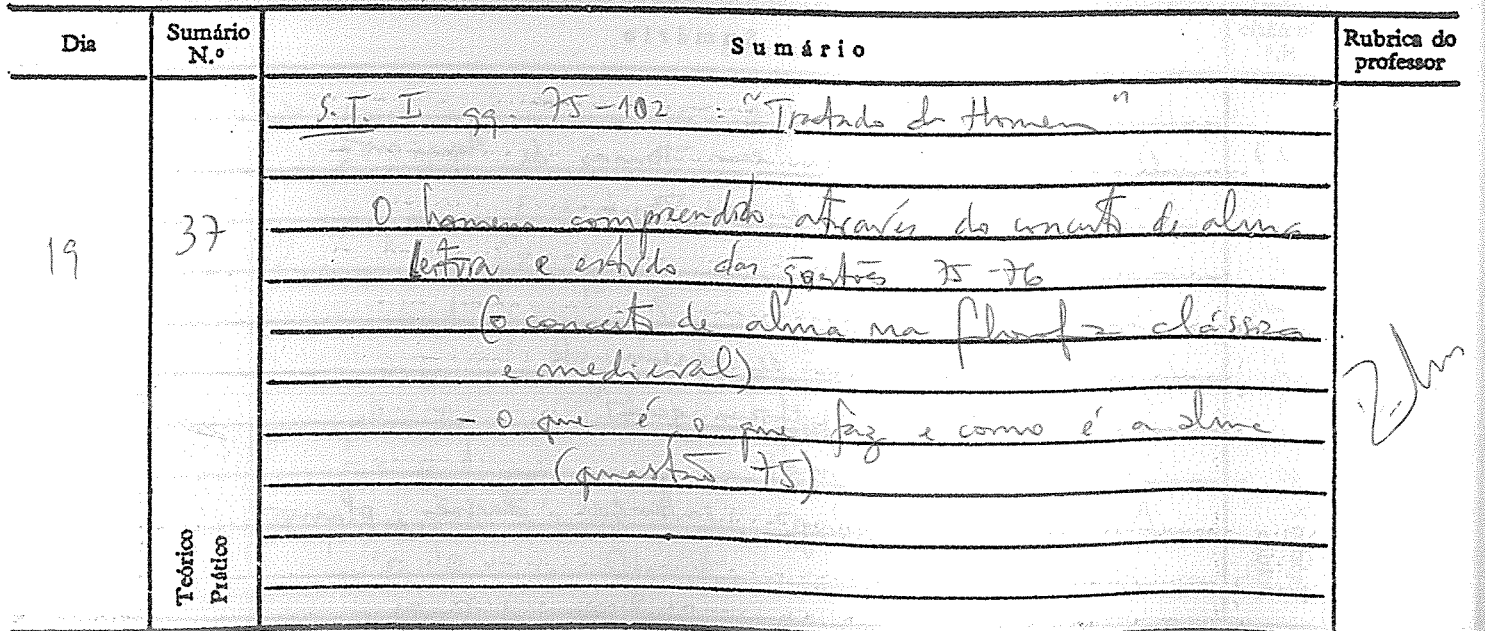 Dia
Sumário N.º
Sumário
Rubrica do professor
19
37
S.T. I qq. 75-102 : "Tratado do Homem"
O homem compreendido através do conceito de alma
Leitura e estudo das questões 75-76
(o conceito de alma na filosofia clássica
e medieval)
- o que é, o que faz e como é a alma
(questão 75)
Teórico
Prático